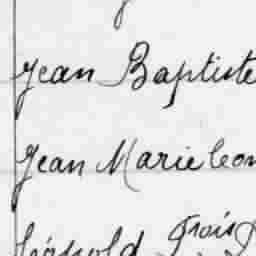 Jean Baptiste
Jean Marie Leon
Léopold Frois